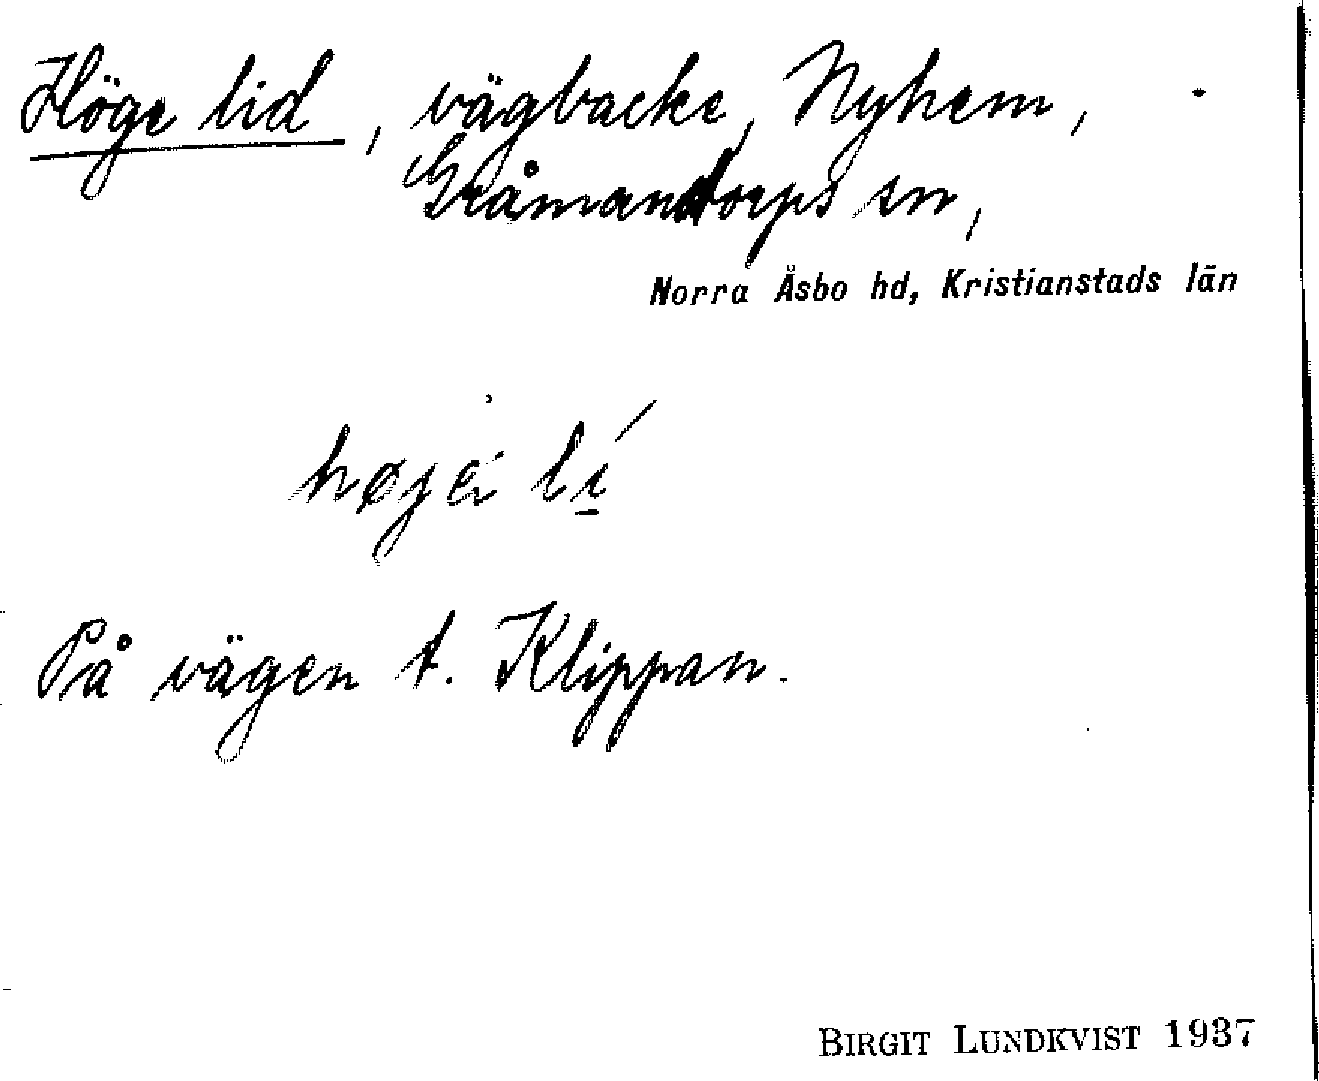 Höge lid, vägbacke, Nyhem,
Gråmandorps sn,
Norra Åsbo hd, Kristianstads län
høje lí
På vägen t. Klippan.
BIRGIT LUNDKVIST 1937